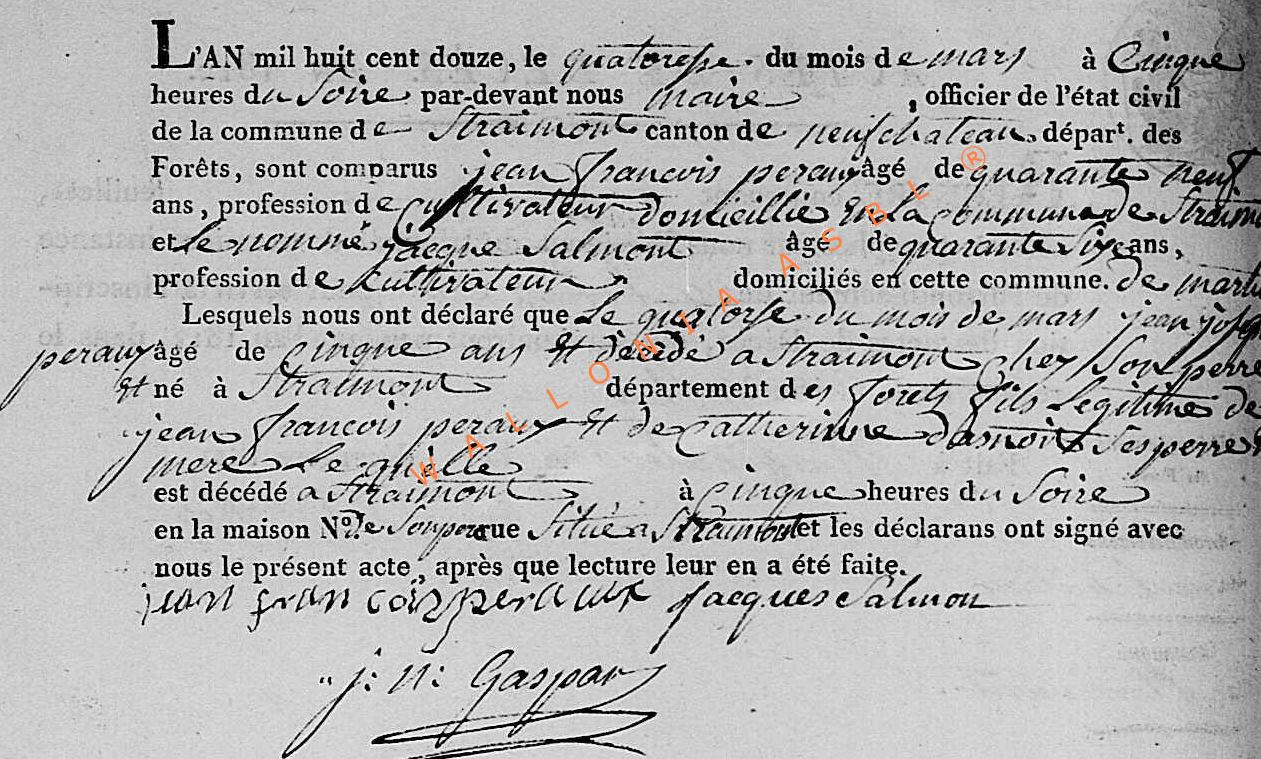 L'AN mil huit cent douze, le quatorsse du mois de mars à Cinque
heures du Soire par-devant nous maire , officier de l'état civil
de la commune de Straimont canton de neufchateau départ. des
Forêts, sont comparus jean francois peraux âgé de quarante neuf
ans, profession de Cultivateur domicillié en la commune de Straimo
et le nommé jacque Salmont âgé de quarante Six ans,
profession de Cultivateur domiciliés en cette commune. de
Lesquels nous ont déclaré que le quatorse du mois de mars jean joseph
peraux âgé de cinque ans et décédé a Straimont chez Son perre
et né à Straimont département des forets fils Legitime de
jean francois peraux et de Catherinne Ses perre
mere Le quelle
est décédé a Straimont à Cinque heures du Soire
en la maison No. de Son pere rue Situé a Straimont et les déclarans ont signé avec
nous le présent acte, après que lecture leur en a été faite.
jean fran cois peraux Jacques Salmon
j: n: Gaspar
WALLONIA ASBL ®